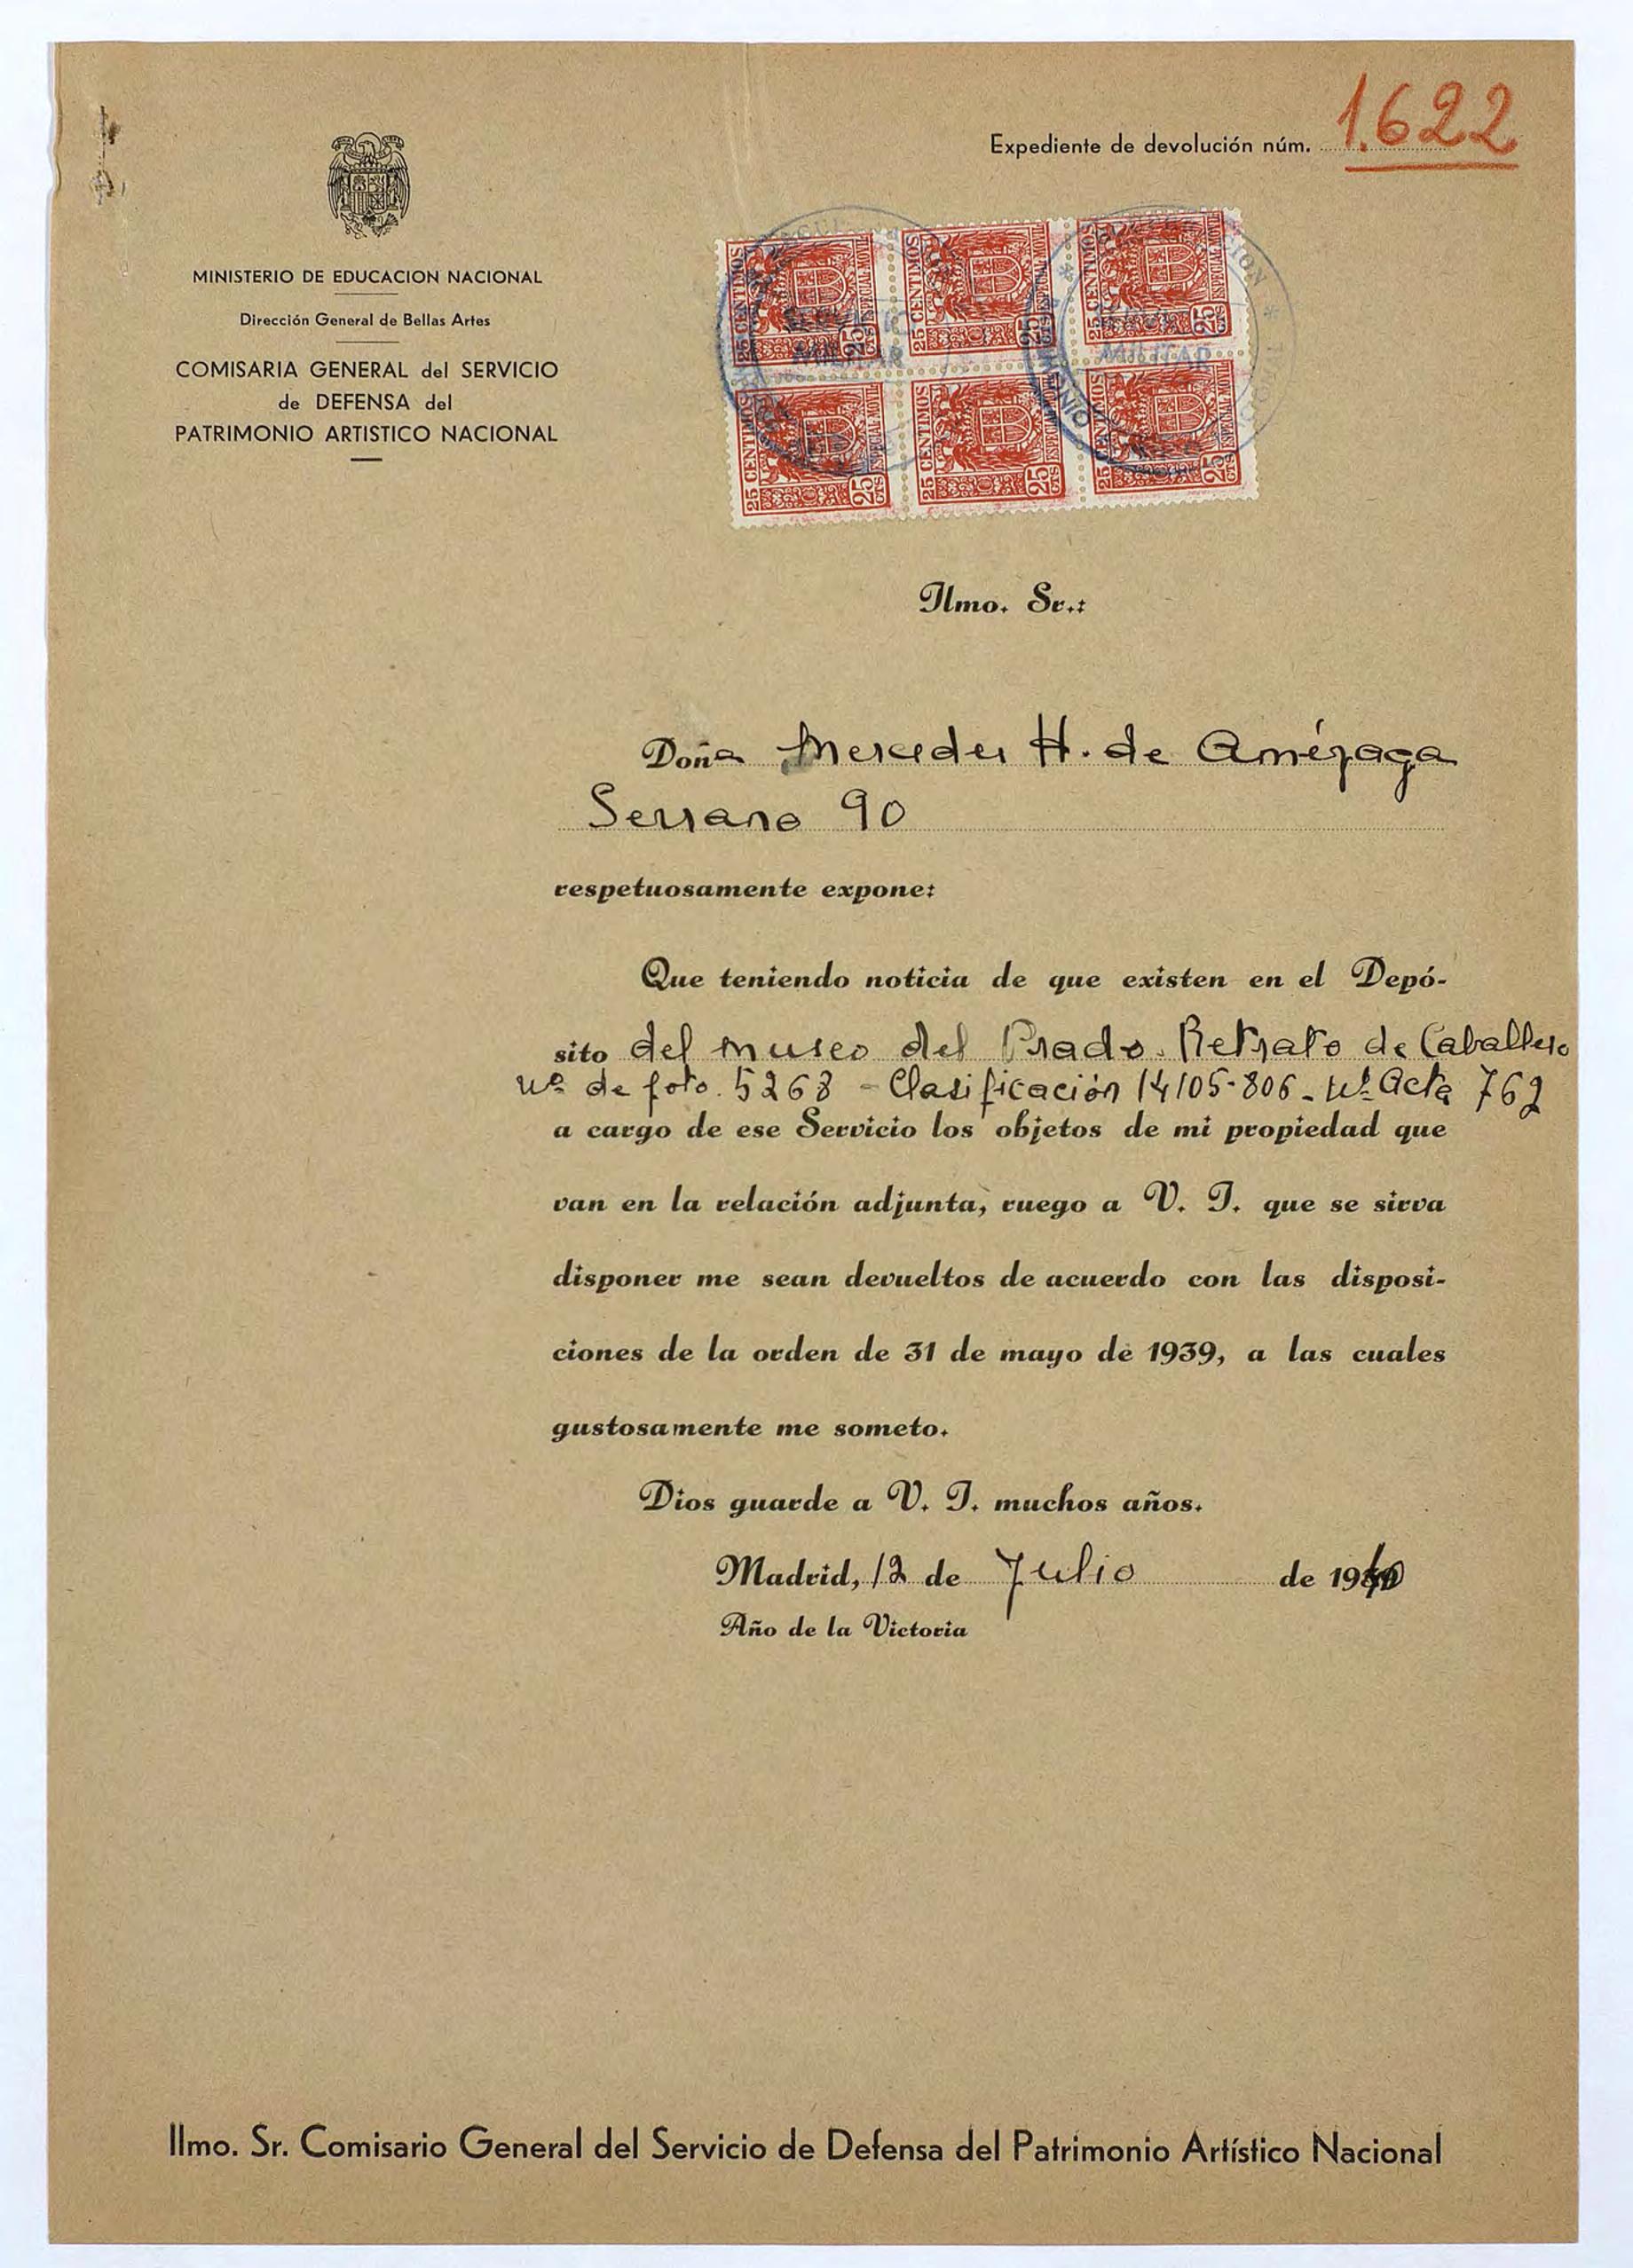 Expediente de devolución núm. 1.622
MINISTERIO DE EDUCACION NACIONAL
Dirección General de Bellas Artes
COMISARIA GENERAL del SERVICIO
de DEFENSA del
PATRIMONIO ARTISTICO NACIONAL
25 CENTIMOS ESPECIAL MOVIL 25 CTS
25 CENTIMOS ESPECIAL MOVIL 25 CTS
25 CENTIMOS ESPECIAL MOVIL 25 CTS
25 CENTIMOS ESPECIAL MOVIL 25 CTS
25 CENTIMOS ESPECIAL MOVIL 25 CTS
25 CENTIMOS ESPECIAL MOVIL 25 CTS
MILITAR
MILITAR
Ilmo. Sr.:
Doña Mercedes H. de Amézaga
Serrano 90
respetuosamente expone:
Que teniendo noticia de que existen en el Depó-
sito del museo del Prado. Retrato de Caballero
nº de foto. 5268 - Clasificación 14105-806 - nº Acta 762
a cargo de ese Servicio los objetos de mi propiedad que
van en la relación adjunta, ruego a V. I. que se sirva
disponer me sean devueltos de acuerdo con las disposi-
ciones de la orden de 31 de mayo de 1939, a las cuales
gustosamente me someto.
Dios guarde a V. I. muchos años.
Madrid, 12 de Julio de 1940
Año de la Victoria
Ilmo. Sr. Comisario General del Servicio de Defensa del Patrimonio Artístico Nacional